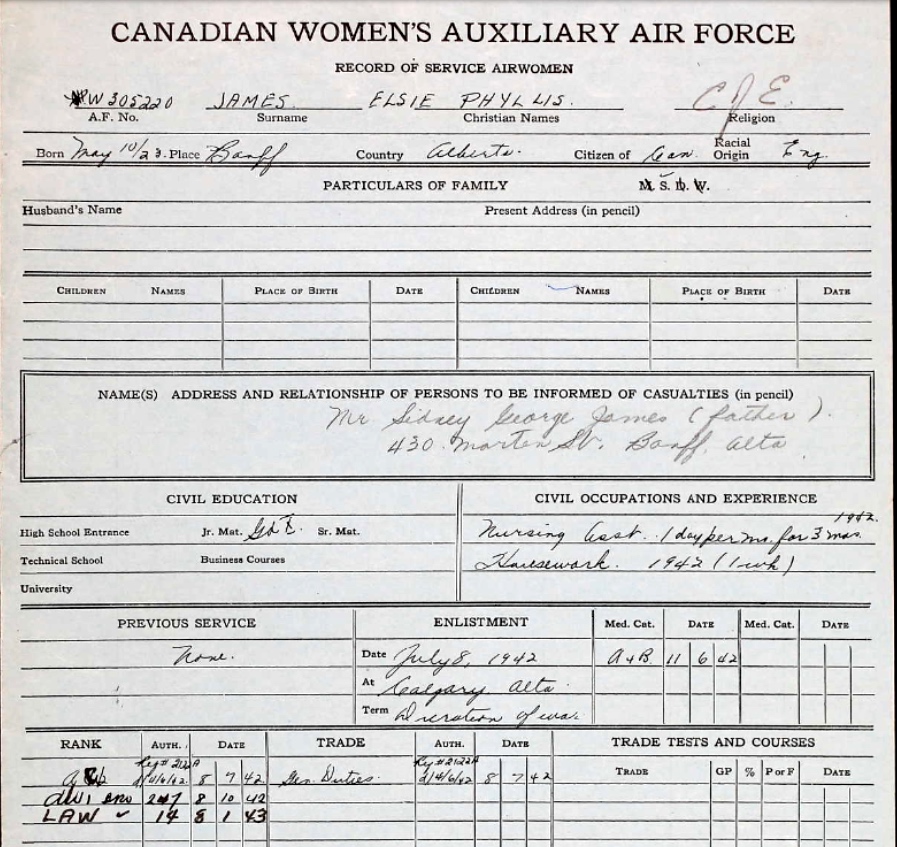 CANADIAN WOMEN'S AUXILIARY AIR FORCE
RECORD OF SERVICE AIRWOMEN
W305220 JAMES. ELSIE PHYLLIS.
A.F. No. Surname Christian Names Religion
Born May 10/23. Place Banff Country Alberta. Citizen of Can. Racial Origin Eng.
PARTICULARS OF FAMILY M. S. D. W.
Husband's Name Present Address (in pencil)
CHILDREN NAMES PLACE OF BIRTH DATE CHILDREN NAMES PLACE OF BIRTH DATE
NAME(S) ADDRESS AND RELATIONSHIP OF PERSONS TO BE INFORMED OF CASUALTIES (in pencil)
Mr Sidney George James (father).
430 Marten St. Banff, Alta
CIVIL EDUCATION CIVIL OCCUPATIONS AND EXPERIENCE
1942.
High School Entrance Jr. Mat. Sr. Mat. Nursing Asst. 1 day per mo. for 3 mos.
Technical School Business Courses Housework. 1942 (1 wk)
University
PREVIOUS SERVICE ENLISTMENT Med. Cat. DATE Med. Cat. DATE
None. Date July 8, 1942 11 6 42
At Calgary Alta.
Term Duration of war.
RANK AUTH. DATE TRADE AUTH. DATE TRADE TESTS AND COURSES
TRADE GP % P or F DATE
8 7 42 Gen. Duties. 8 7 42
247 8 10 42
LAW 14 8 1 43